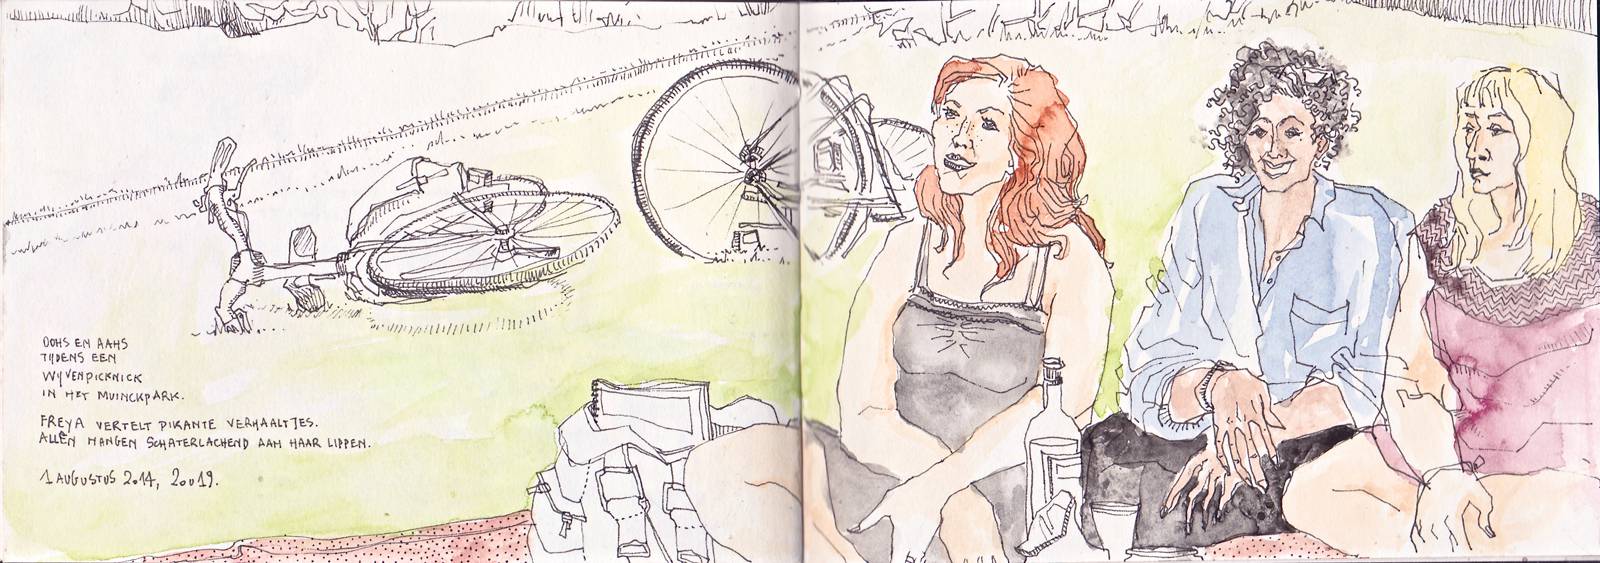 OOHS EN AAHS
TIJDENS EEN
WIJVENPICKNICK
IN HET MUINCKPARK.
FREYA VERTELT PIKANTE VERHAALTJES.
ALLEN HANGEN SCHATERLACHEND AAN HAAR LIPPEN.
1 AUGUSTUS 2014, 20u19.